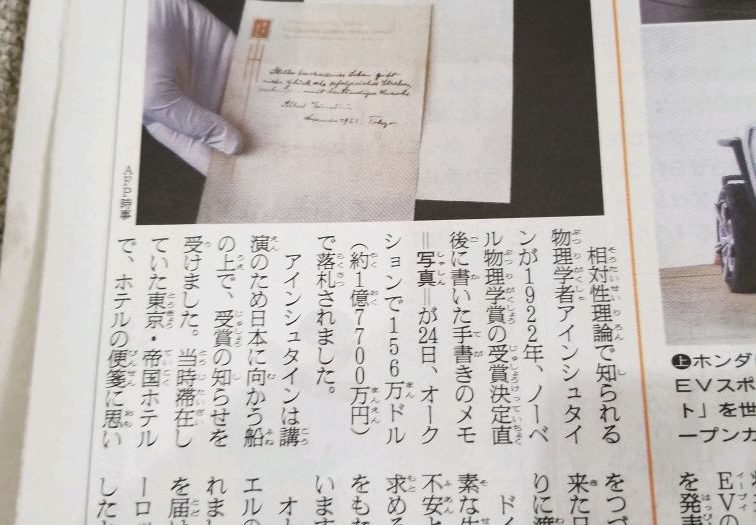 Albert Einstein
November 1922. Tokyo
AFP時事
相対性理論で知られる
物理学者アインシュタイ
ンが1922年、ノーベ
ル物理学賞の受賞決定直
後に書いた手書きのメモ
=写真=が24日、オーク
ションで156万ドル
(約1億7700万円)
で落札されました。
アインシュタインは講
演のため日本に向かう船
の上で、受賞の知らせを
受けました。当時滞在し
ていた東京・帝国ホテル
で、ホテルの便箋に思い
をつづ
来た日
りに渡
ドイ
素な生
不安と
求める
をもた
います
オー
エルの
れまし
を届け
ーロッ
したと
上ホンダ
EVスポ
ト」を世
ープンカ
EVの
を発表